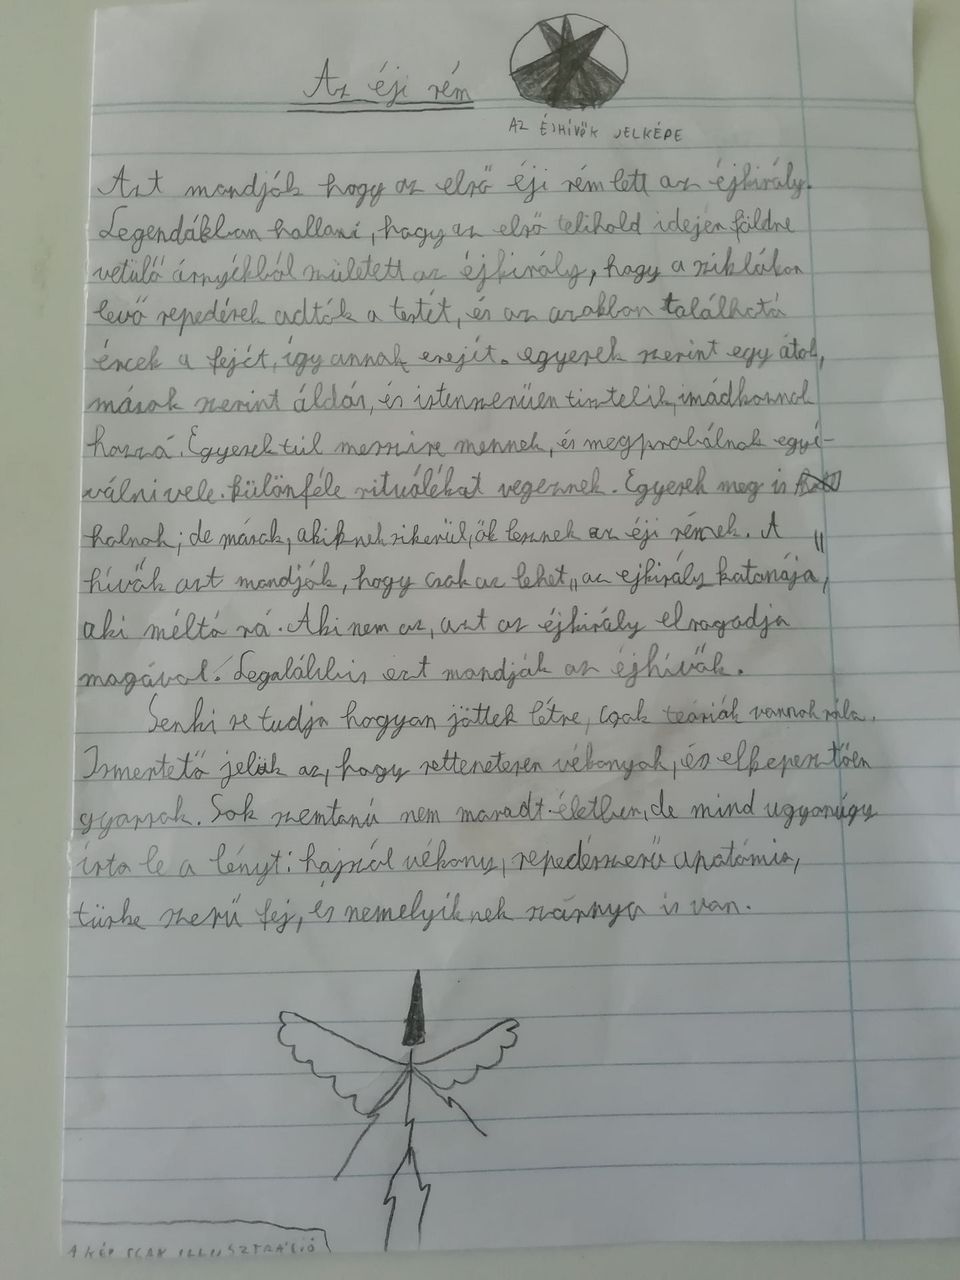 Az éji rém
AZ ÉJHÍVŐK JELKÉPE
Azt mondják hogy az első éji rém lett az éjkirály.
Legendákban hallani, hogy az első telihold idején földre
vetülő árnyékból született az éjkirály, hogy a sziklákon
levő repedések adták a testét, és az azokban található
ércek a fejét, így annak erejét. egyesek szerint egy átok,
mások szerint áldás, és istenszerűen tisztelik, imádkoznak
hozzá. Egyesek túl messzire mennek, és megprobálnak egyé-
válni vele. különféle rituálékat vegeznek. Egyesek meg is
halnak; de mások, akiknek sikerül, ők lesznek az éji rémek. A
hívők azt mondják, hogy csak az lehet „az ejkirály katanája"
aki méltó rá. Aki nem az, azt az éjkirály elragadja
magával. Legalábbis ezt mondják az éjhívők.
Senki se tudja hogyan jöttek létre, csak teóriák vannak róla.
Ismertető jelük az, hogy rettenetesen vékonyak, és elkepesztően
gyorsak. Sok szemtanú nem maradt életben, de mind ugyanúgy
írta le a lényt: hajszál vékony, repedésszerű anatómia,
tüske szerű fej, es nemelyiknek szárnya is van.
A KÉP CSAK ILLUSZTRÁCIÓ